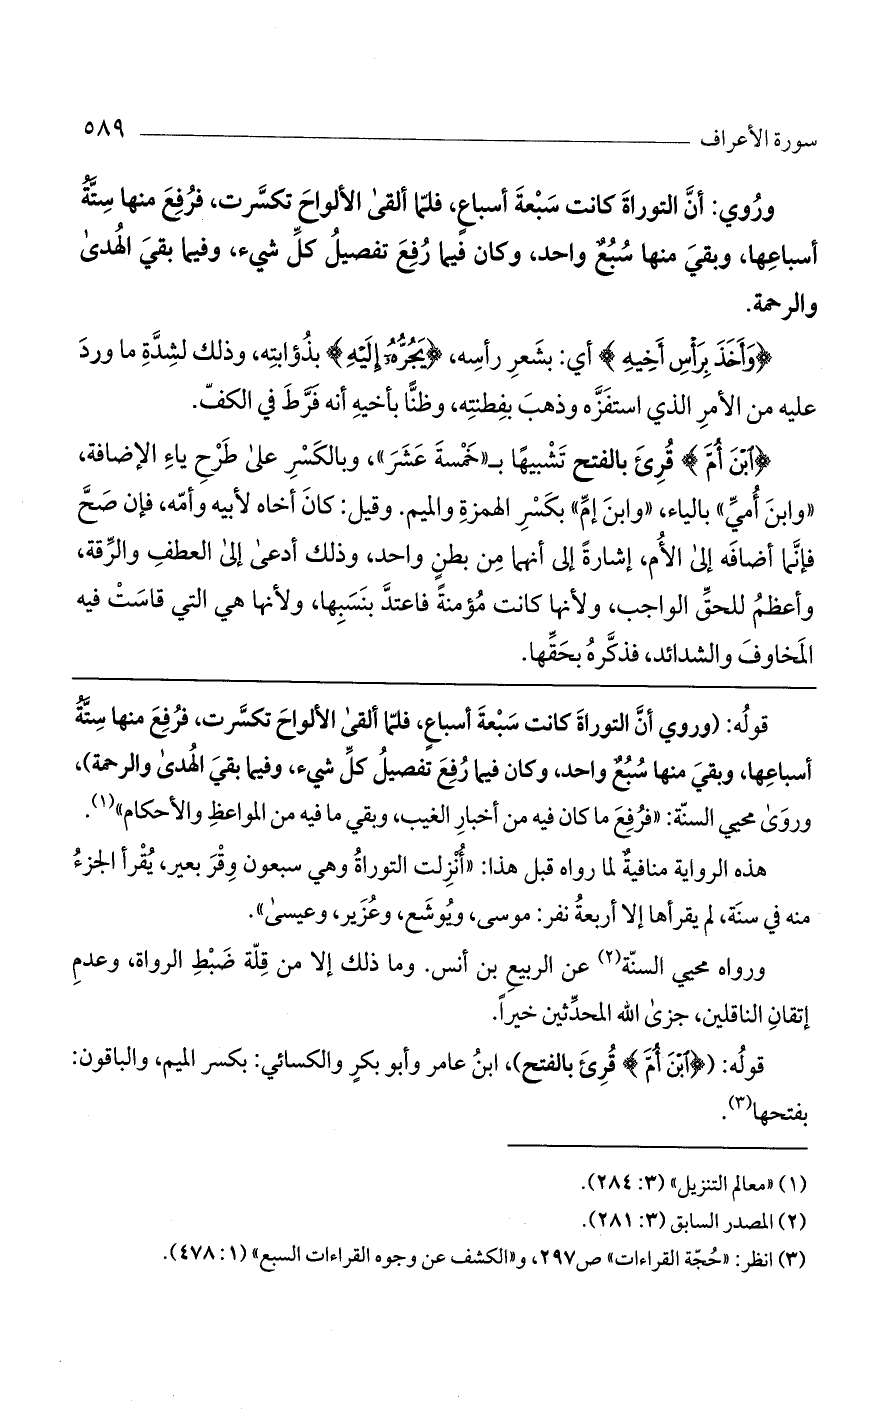 سورة الأعراف ٥٨٩
ورُوي: أنَّ التوراةَ كانت سَبْعةَ أسباعٍ، فلمّا ألقىٰ الألواحَ تكسَّرت، فرُفِعَ منها سِتَّةُ
أسباعِها، وبقيَ منها سُبُعٌ واحد، وكان فيما رُفِعَ تفصيلُ كلِّ شيء، وفيما بقيَ الهُدىٰ
والرحمة.
﴿وَأَخَذَ بِرَأْسِ أَخِيهِ﴾ أي: بشَعرِ رأسِه، ﴿يَجُرُّهُۥٓ إِلَيْهِ﴾ بذُؤابتِه، وذلك لشِدَّةِ ما وردَ
عليه من الأمرِ الذي استفَزَّه وذهبَ بفِطنتِه، وظنًّا بأخيهِ أنه فَرَّطَ في الكفّ.
﴿ٱبْنَ أُمَّ﴾ قُرِئَ بالفتح تَشْبيهًا بـ«خَمْسةَ عَشَرَ»، وبالكَسْرِ علىٰ طَرْحِ ياءِ الإضافة،
«وابنَ أُميِّ» بالياء، «وابنَ إمِّ» بكَسْرِ الهمزةِ والميم. وقيل: كانَ أخاه لأبيه وأمّه، فإن صَحَّ
فإنَّما أضافَه إلىٰ الأُم، إشارةً إلى أنهما مِن بطنٍ واحد، وذلك أدعىٰ إلىٰ العطفِ والرِّقة،
وأعظمُ للحقِّ الواجب، ولأنها كانت مُؤمنةً فاعتدَّ بنَسَبِها، ولأنها هي التي قاسَتْ فيه
المَخاوفَ والشدائد، فذكَّرهُ بحَقِّها.
قولُه: (وروي أنَّ التوراةَ كانت سَبْعةَ أسباعٍ، فلمّا ألقىٰ الألواحَ تكسَّرت، فرُفِعَ منها سِتَّةُ
أسباعِها، وبقيَ منها سُبُعٌ واحد، وكان فيما رُفِعَ تفصيلُ كلِّ شيء، وفيما بقيَ الهُدىٰ والرحمة)،
وروَىٰ محيي السنّة: «فرُفِعَ ما كان فيه من أخبارِ الغيب، وبقي ما فيه من المواعظِ والأحكام»(١).
هذه الرواية منافيةٌ لما رواه قبل هذا: «أُنْزِلت التوراةُ وهي سبعون وِقْرَ بعير، يُقْرأ الجزءُ
منه في سنَة، لم يقرأها إلا أربعةُ نفر: موسى، ويُوشَع، وعُزَير، وعيسىٰ».
ورواه محيي السنّة(٢) عن الربيعِ بن أنس. وما ذلك إلا من قِلّة ضَبْطِ الرواة، وعدمِ
إتقانِ الناقلين، جزىٰ الله المحدِّثين خيراً.
قولُه: (﴿ٱبْنَ أُمَّ﴾ قُرِئَ بالفتح)، ابنُ عامر وأبو بكرٍ والكسائي: بكسر الميم، والباقون:
بفتحها(٣).
(١) «معالم التنزيل» (٣: ٢٨٤).
(٢) المصدر السابق (٣: ٢٨١).
(٣) انظر: «حُجّة القراءات» ص٢٩٧، و«الكشف عن وجوه القراءات السبع» (١: ٤٧٨).